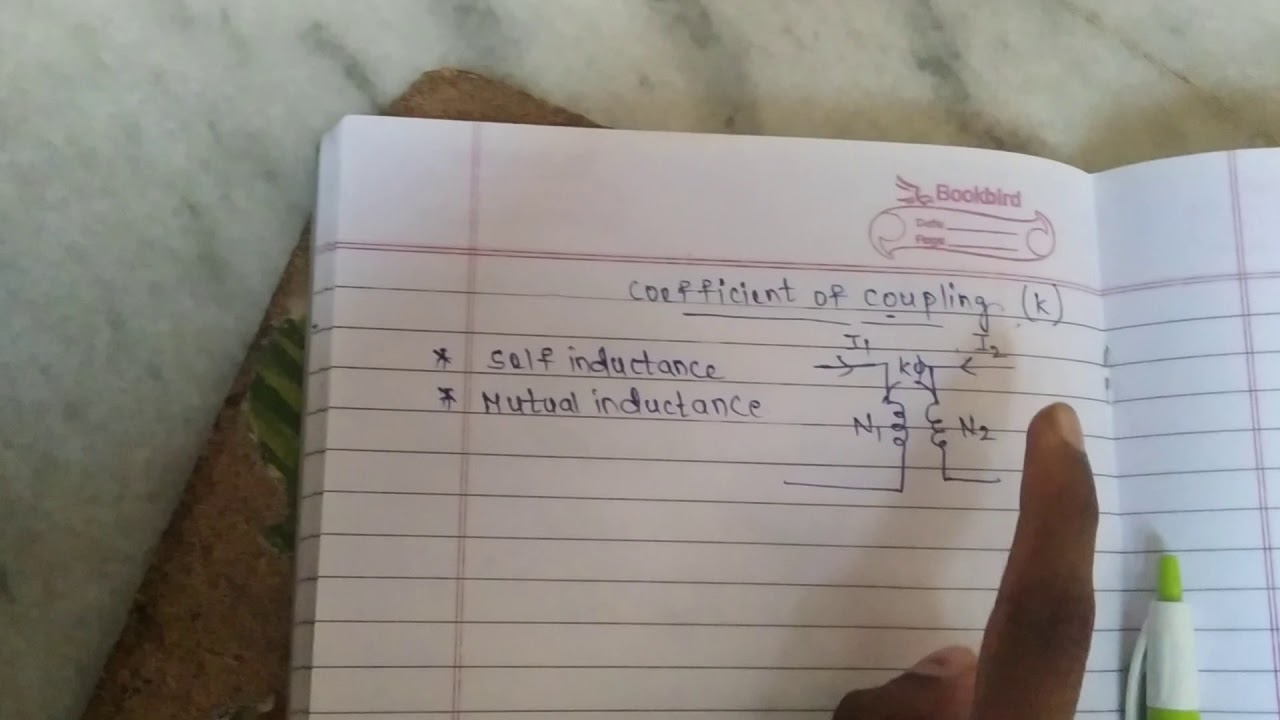 Bookbird
Date
Page
Coefficient of coupling (k)
* Self inductance
* Mutual inductance
I1
I2
Kϕ
N1
N2